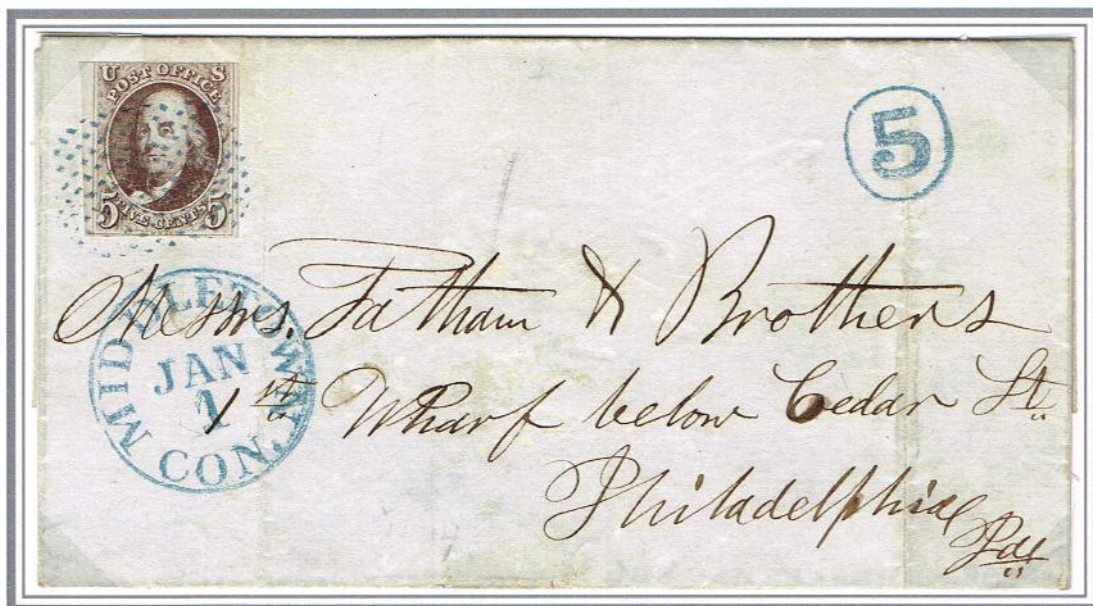 U S
POST OFFICE
5 FIVE CENTS 5
5
MIDDLETOWN CON.
JAN
1
Messrs. Tatham & Brothers
1st Wharf below Cedar St.
Philadelphia
Pa